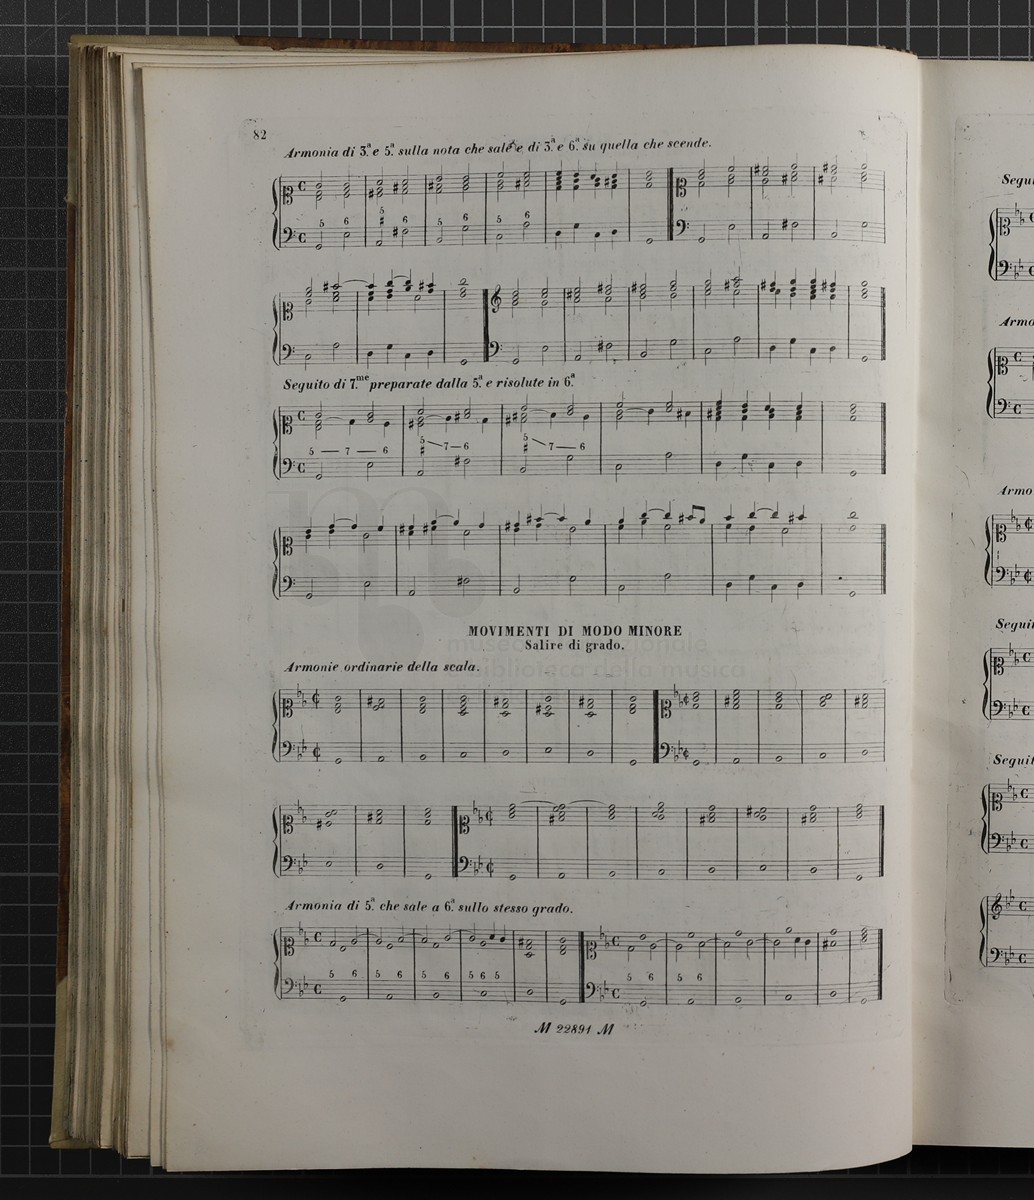 82
Armonia di 3.a e 5.a sulla nota che sale e di 3.a e 6.a su quella che scende.
5 6 5 6 5 6 5 6
Seguito di 7.me preparate dalla 5.a e risolute in 6.a
5 — 7 — 6 5 7 — 6 5 7 — 6
MOVIMENTI DI MODO MINORE
Salire di grado.
museo internazionale
e biblioteca della musica
Armonie ordinarie della scala.
Armonia di 5.a che sale a 6.a sullo stesso grado.
5 6 5 6 5 6 5 6 5 5 6 5 6
M 22891 M
Armo
Armo